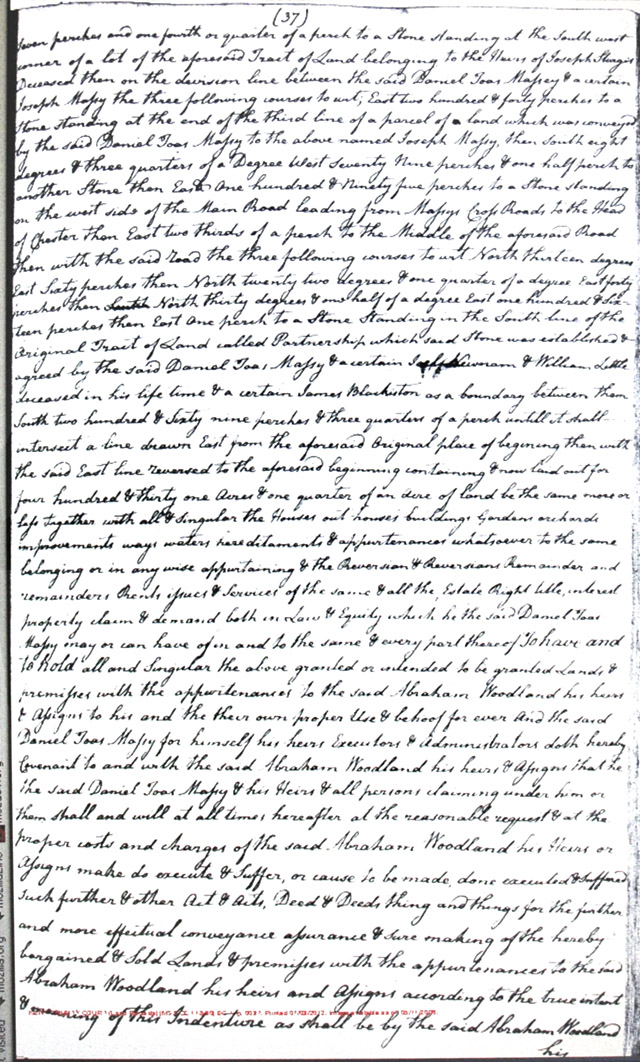 (37)
Seven perches and one fourth or quarter of a perch to a Stone standing at the South west
corner of a lot of the aforesaid Tract of Land belonging to the Heirs of Joseph Sturgis
Deceased then on the devision line between the said Daniel Toas Massey & a certain
Joseph Massy the three following courses to wit, East two hundred & forty perches to a
Stone standing at the end of the third line of a parcel of a land which was conveyed
by the said Daniel Toas Massy to the above named Joseph Massy, then South eight
degrees & three quarters of a Degree West Seventy Nine perches & one half perch to
another Stone then East One hundred & Ninety five perches to a Stone standing
on the west side of the Main Road leading from Massys Cross Roads to the Head
of Chester then East two thirds of a perch to the Middle of the aforesaid Road
then with the said road the three following courses to wit North thirteen degrees
East Sixty perches then North twenty two degrees & one quarter of a degree East forty
perches then South North thirty degrees & one half of a degree East one hundred & Six-
teen perches then East One perch to a Stone Standing in the South line of the
Original Tract of Land called Partnership which said Stone was established &
agreed by the said Daniel Toas Massy & a certain Newnam & William Little
deceased in his life time & a certain James Blackiston as a boundary between them
South two hundred & Sixty nine perches & three quarters of a perch untill it shall
intersect a line drawn East from the aforesaid Original place of begining then with
the said East line reversed to the aforesaid beginning containing & now laid out for
four hundred & thirty one Acres & one quarter of an acre of land be the same more or
less together with all & Singular the Houses out houses buildings Gardens orchards
improvements ways waters hereditaments & appurtenances whatsoever to the same
belonging or in any wise appurtaining & the Reversion & Reversions Remainder and
remainders Rents issues & Services of the same & all the, Estate Right title, interest
property claim & demand both in Law & Equity which he the said Daniel Toas
Massy may or can have of in and to the same & every part thereof To have and
to hold all and Singular the above granted or intended to be granted Lands &
premisses with the appurtenances to the said Abraham Woodland his heirs
& Assigns to his and the their own proper Use & behoof for ever And the said
Daniel Toas Massy for himself his heirs Executors & Administrators doth hereby
Covenant to and with the said Abraham Woodland his heirs & Assigns that he
the said Daniel Toas Massy & his Heirs & all persons claiming under him or
them shall and will at all times hereafter at the reasonable request & at the
proper costs and charges of the said Abraham Woodland his Heirs or
Assigns make do execute & Suffer, or cause to be made, done executed & Suffered
Such further & other Act & Acts, Deed & Deeds thing and things for the further
and more effectual conveyance assurance & sure making of the hereby
bargained & Sold Lands & premisses with the appurtenances to the said
Abraham Woodland his heirs and Assigns acording to the true intent
& meaning of this Indenture as shall be by the said Abraham Woodland
his